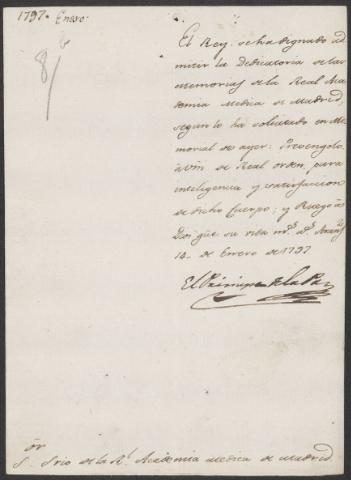 1797. Enero.
8
El Rey se ha dignado ad
mitir la Dedicatoria de las
memorias de la Real Aca
demia Medica de Madrid,
segun lo ha solicitado en Me
morial de ayer: Prevengolo
à Vm de Real orden, para
inteligencia y satisfaccion
de dicho Cuerpo; y Ruego à
Dios gũe su vida m.s a.s Aranj.z
14. de Enero de 1797
El Principe de la Paz
S.or Srio de la R.l Academia Medica de Madrid.